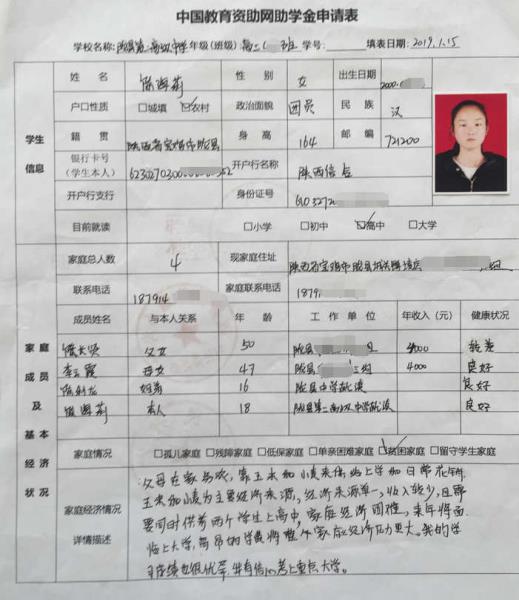 中国教育资助网助学金申请表
学校名称: 陇县第二高级中学 年级(班级) 高三( 班 学号: 填表日期: 2019.1.15
学生信息
姓 名 性 别 女 出生日期 2000.
户口性质 □城填 ☑农村 政治面貌 团员 民 族 汉
籍 贯 陕西省宝鸡市陇县 身 高 164 邮 编 721200
银行卡号(学生本人) 623027030 开户行名称 陕西信合
开户行支行 身份证号 610327
目前就读 □小学 □初中 ☑高中 □大学
家庭成员及基本经济状况
家庭总人数 4 现家庭住址 陕西省宝鸡市陇县城关镇
联系电话 187914 家庭联系电话 1879
成员姓名 与本人关系 年 龄 工 作 单 位 年收入(元) 健康状况
父女 50 陇县 较差
李 霞 母女 47 陇县 4000 良好
姐弟 16 陇县中学就读 良好
本人 18 陇县第二高级中学就读 良好
家庭情况 □孤儿家庭 □残障家庭 □低保家庭 □单亲困难家庭 ☑贫困家庭 □留守学生家庭
家庭经济情况详情描述
父母在家务农,靠玉米和小麦来供给上学和日常花销.
玉米和小麦为主要经济来源,经济来源单一,收入较少,且需
要同时供养两个学生上高中,家庭经济困难,来年将面
临上大学,高昂的学费将难个家庭经济压力更大。我的学
习成绩也很优异,并有信心考上重点大学。